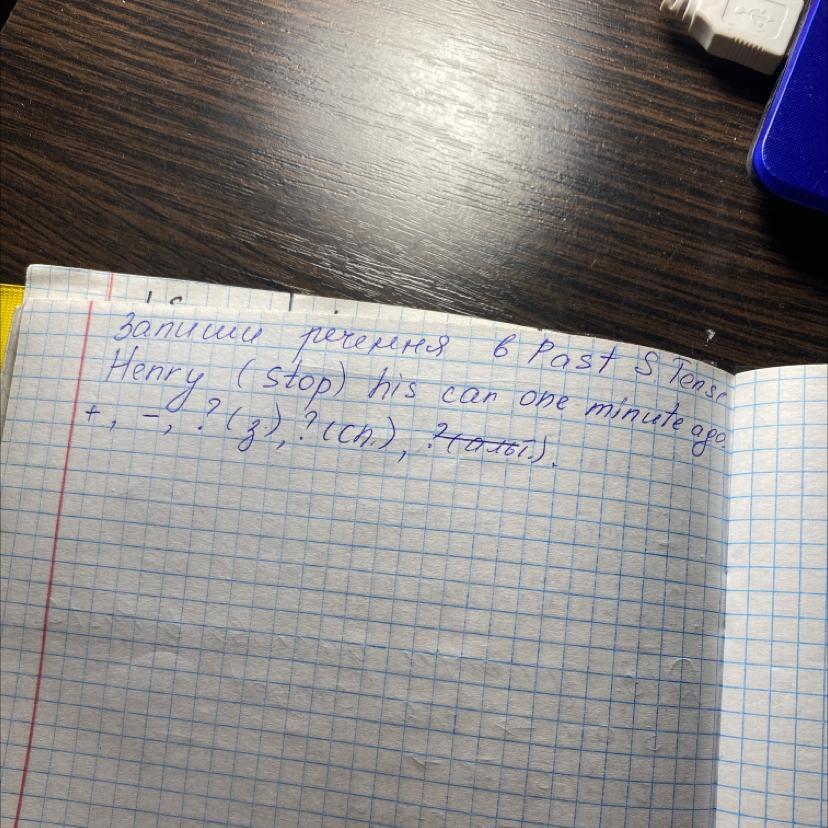 Запиши речення в Past S. Tense
Henry (stop) his can one minute ago.
+, -, ?(з), ?(сп.), ?(альт.).